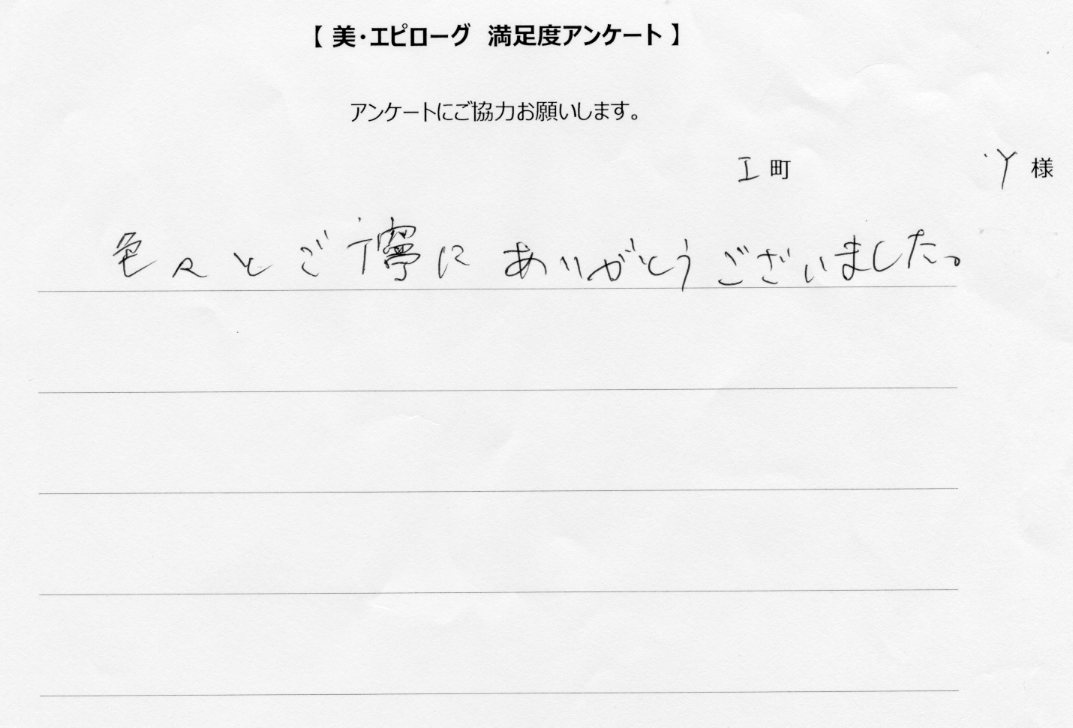 【 美・エピローグ 満足度アンケート 】
アンケートにご協力お願いします。
I 町 Y 様
色々とご丁寧にありがとうございました。